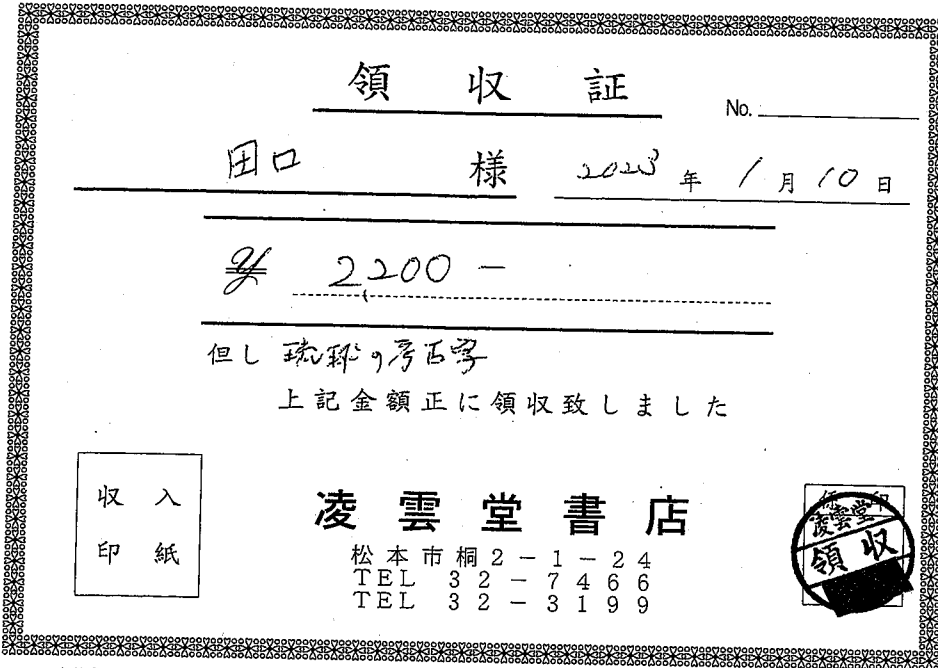 領収証
No.
田口 様 2023年1月10日
¥ 2,200-
但し 琉球の考古学
上記金額正に領収致しました
収入
印紙
凌雲堂書店
松本市桐2-1-24
TEL 32-7466
TEL 32-3199
係印
凌雲堂
領収